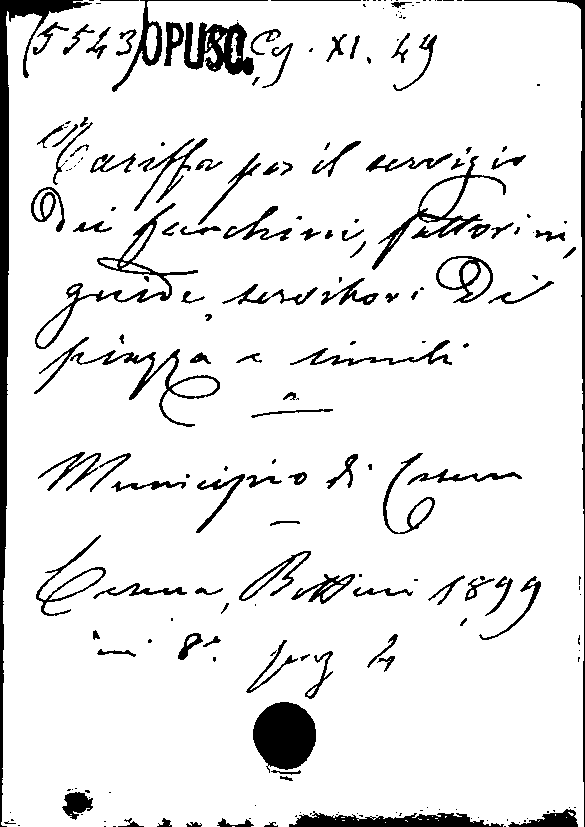 (5543) OPUSC. Cg. XI. 49
Tariffa per il servizio
dei facchini, fattorini,
guide, servitori di
piazza e simili
Municipio di Cesena
Cesena, Bettini 1899
in 8° pag 4